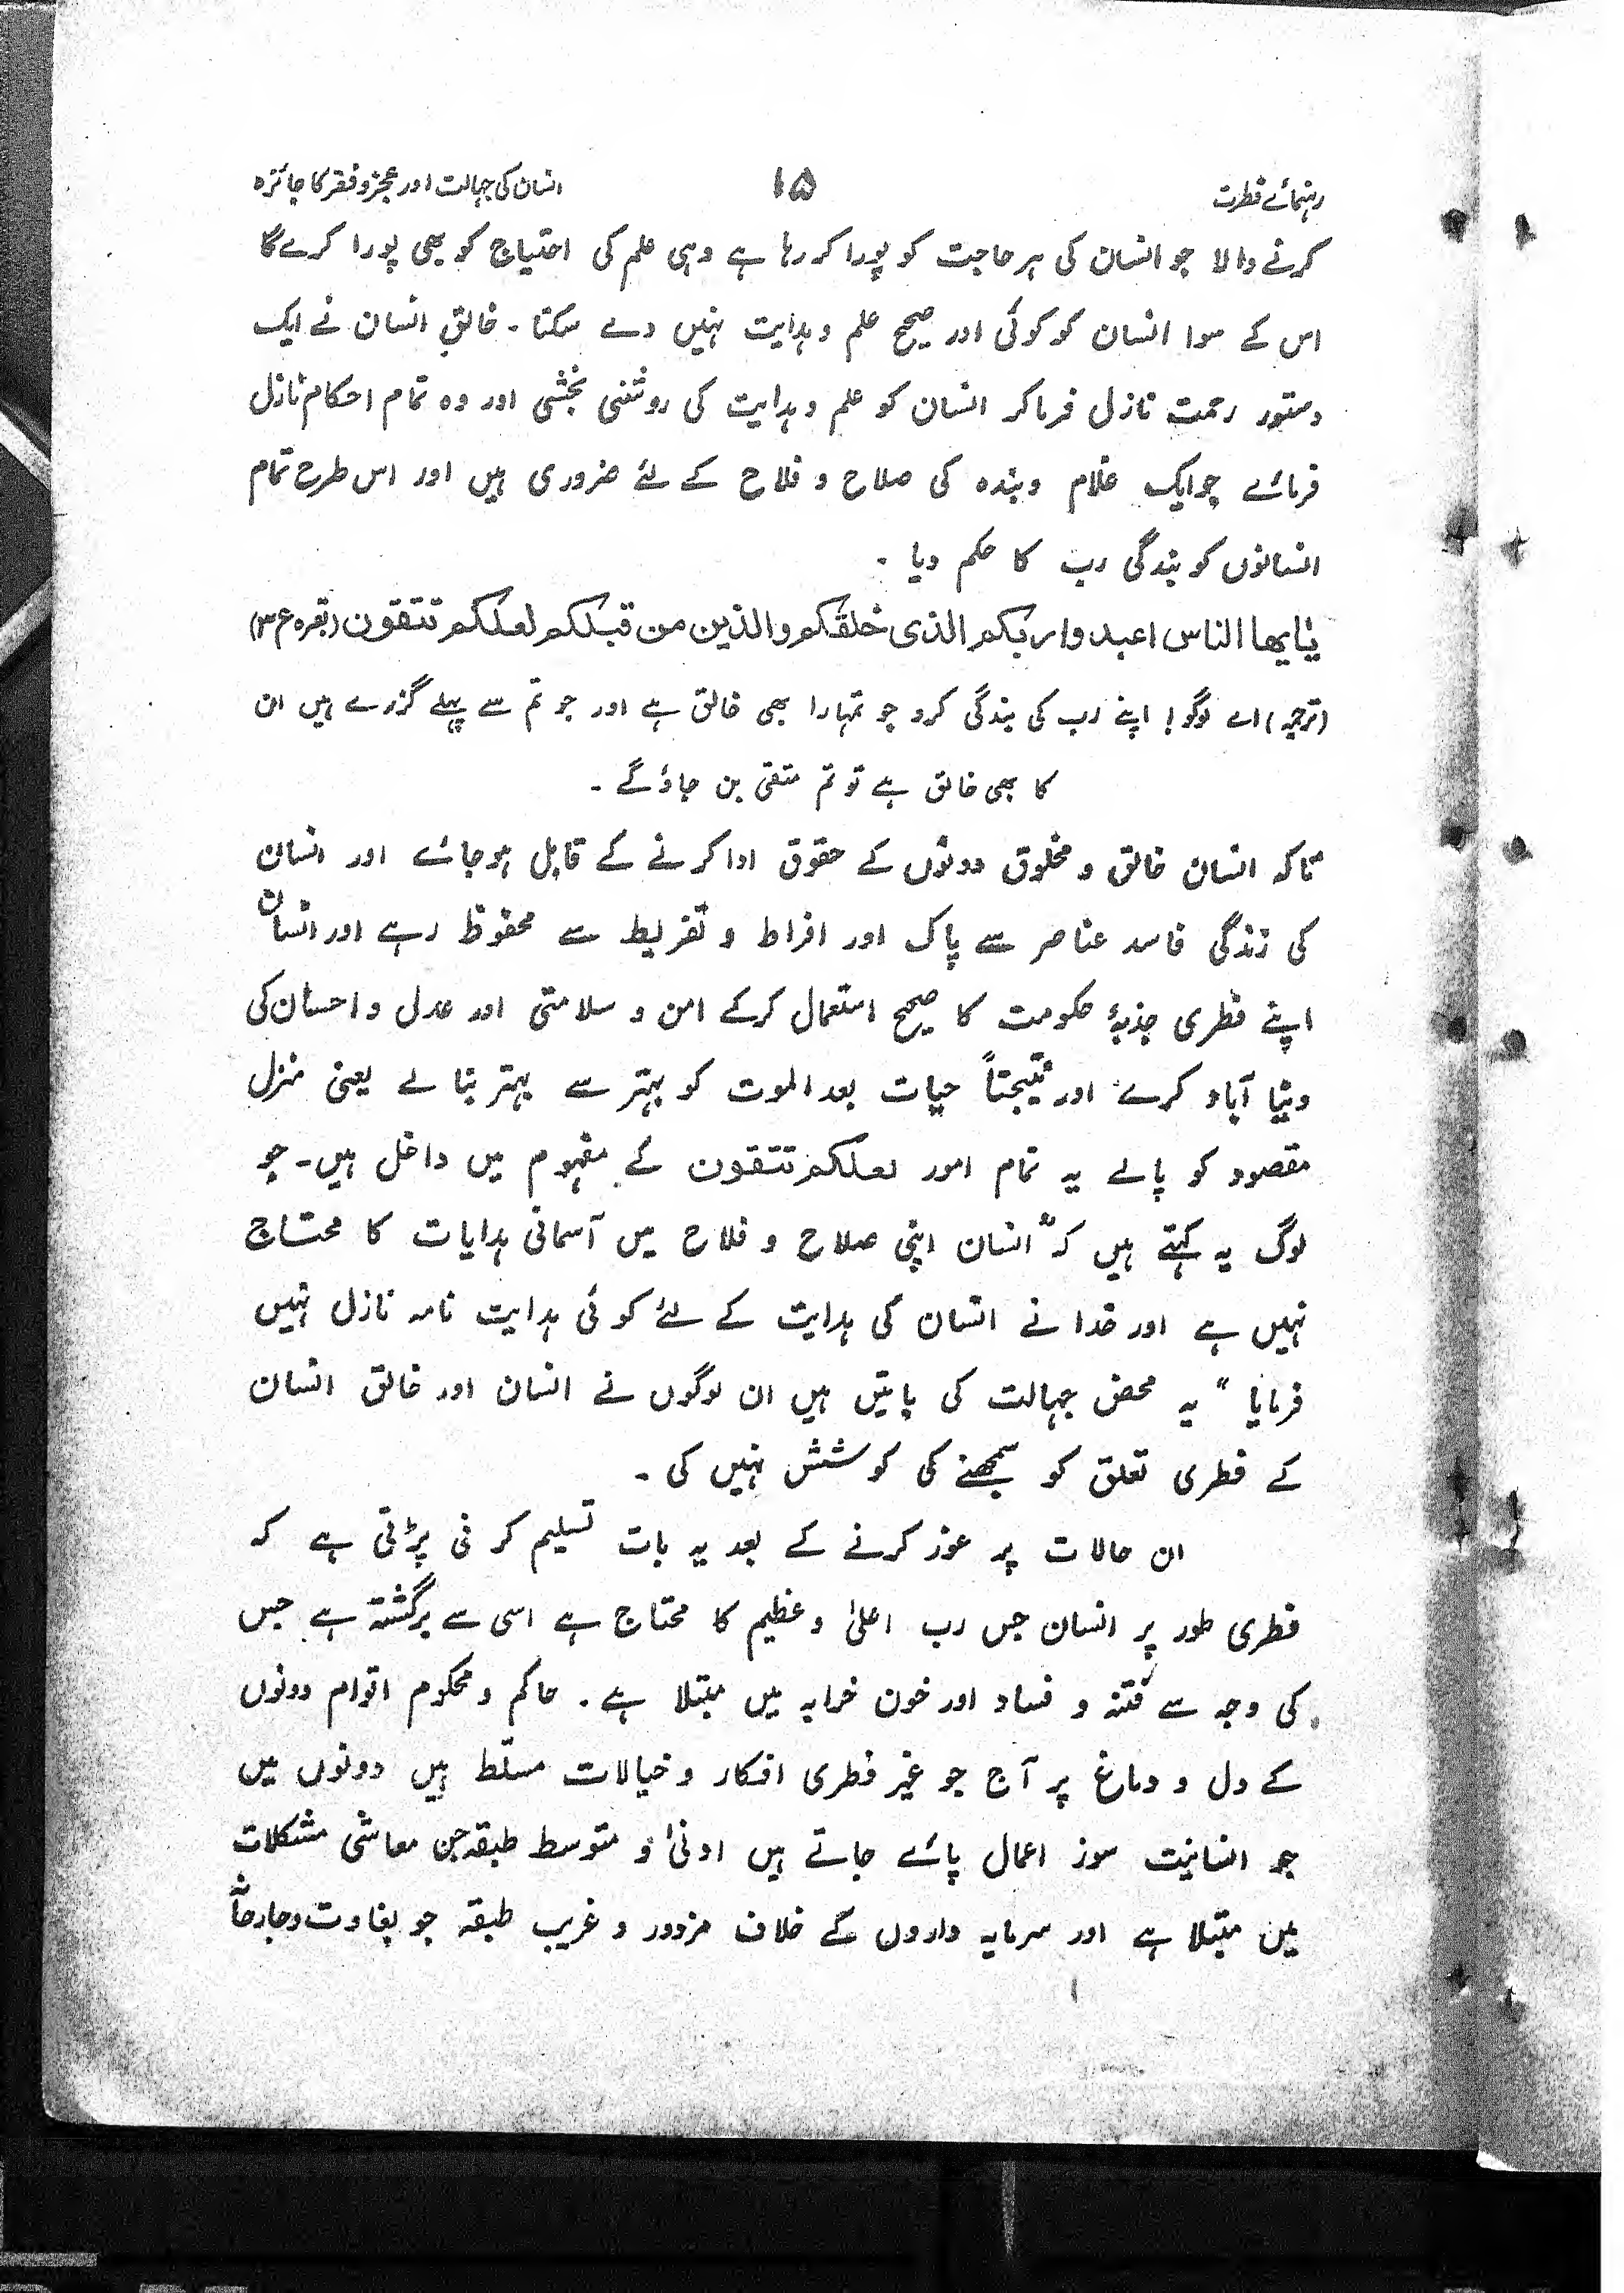 رہنمائے فطرت ۱۵ انسان کی جہالت اور عجز و فقر کا جائزہ
کرنے والا جو انسان کی ہر حاجت کو پورا کر رہا ہے وہی علم کی احتیاج کو بھی پورا کرے گا
اس کے سوا انسان کو کوئی اور صحیح علم و ہدایت نہیں دے سکتا ۔ خالقِ انسان نے ایک
دستور رحمت نازل فرما کر انسان کو علم و ہدایت کی روشنی بخشی اور وہ تمام احکام نازل
فرمائے جو ایک غلام و بندہ کی صلاح و فلاح کے لئے ضروری ہیں اور اس طرح تمام
انسانوں کو بندگی رب کا حکم دیا ۔
یٰایھا الناس اعبدوا ربکم الذی خلقکم والذین من قبلکم لعلکم تتقون (بقرہ ع ۳)
(ترجمہ) اے لوگو! اپنے رب کی بندگی کرو جو تمہارا بھی خالق ہے اور جو تم سے پہلے گزرے ہیں ان
کا بھی خالق ہے تو تم متقی بن جاؤ گے ۔
تاکہ انسان خالق و مخلوق دونوں کے حقوق ادا کرنے کے قابل ہو جائے اور انسان
کی زندگی فاسد عناصر سے پاک اور افراط و تفریط سے محفوظ رہے اور انسان
اپنے فطری جذبۂ حکومت کا صحیح استعمال کر کے امن و سلامتی اور عدل و احسان کی
دنیا آباد کرے اور نتیجتاً حیات بعد الموت کو بہتر سے بہتر بنا لے یعنی منزل
مقصود کو پالے یہ تمام امور لعلکم تتقون کے مفہوم میں داخل ہیں۔ جو
لوگ یہ کہتے ہیں کہ "انسان اپنی صلاح و فلاح میں آسمانی ہدایات کا محتاج
نہیں ہے اور خدا نے انسان کی ہدایت کے لئے کوئی ہدایت نامہ نازل نہیں
فرمایا" یہ محض جہالت کی باتیں ہیں ان لوگوں نے انسان اور خالق انسان
کے فطری تعلق کو سمجھنے کی کوشش نہیں کی ۔
ان حالات پر غور کرنے کے بعد یہ بات تسلیم کرنی پڑتی ہے کہ
فطری طور پر انسان جس رب اعلیٰ و عظیم کا محتاج ہے اسی سے برگشتہ ہے جس
کی وجہ سے فتنہ و فساد اور خون خرابہ میں مبتلا ہے ۔ حاکم و محکوم اقوام دونوں
کے دل و دماغ پر آج جو غیر فطری افکار و خیالات مسلّط ہیں دونوں میں
جو انسانیت سوز اعمال پائے جاتے ہیں ادنیٰ و متوسط طبقہ جن معاشی مشکلات
میں مبتلا ہے اور سرمایہ داروں کے خلاف مزدور و غریب طبقہ جو بغاوت و جارحانہ